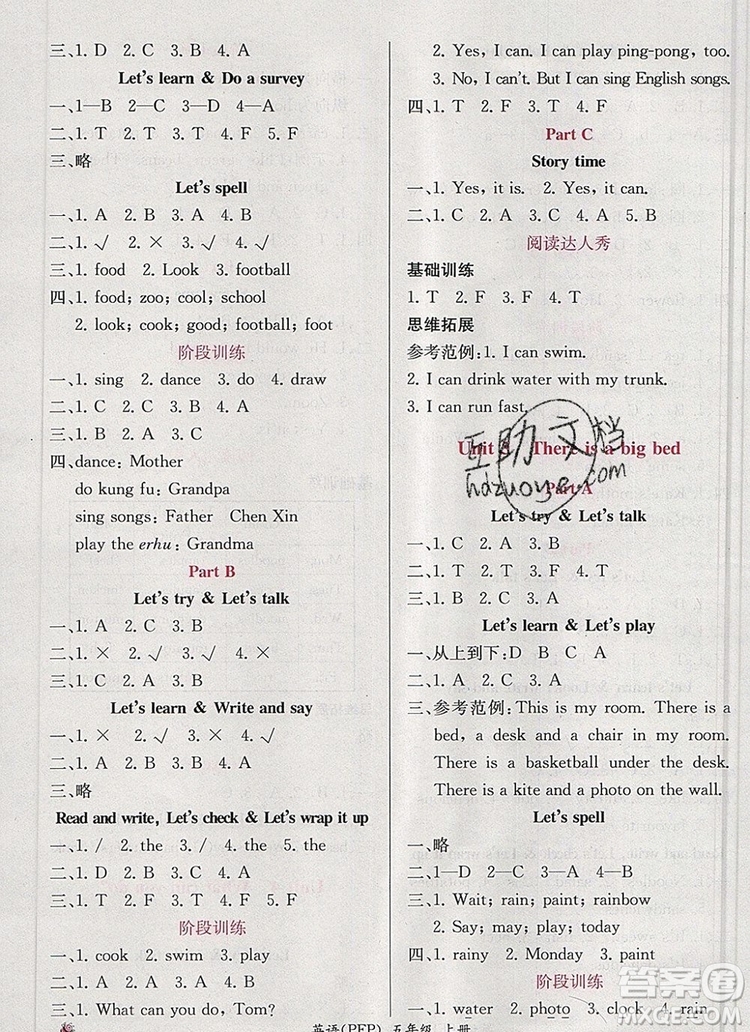 三、1. D 2. A 3. C 4. A
Let's learn & Do a survey
一、1—B 2—C 3—D 4—A
二、1. T 2. T 3. T 4. F 5. F
三、略
Let's spell
一、1. A 2. B 3. A 4. B
二、1. √ 2. × 3. √ 4. √
三、1. food 2. Look 3. football
四、1. food; zoo; cool; school
2. look; cook; good; football; foot
阶段训练
一、1. sing 2. dance 3. do 4. draw
二、1. C 2. B 3. A 4. B
三、1. B 2. C 3. C 4. A
四、dance: Mother
do kung fu: Grandpa
sing songs: Father Chen Xin
play the erhu: Grandma
Part B
Let's try & Let's talk
一、1. A 2. C 3. B
二、1. × 2. √ 3. √ 4. ×
三、1. B 2. D 3. A 4. C
Let's learn & Write and say
一、1. × 2. √ 3. √ 4. × 5. ×
二、1. C 2. D 3. A 4. B
三、略
Read and write, Let's check & Let's wrap it up
一、1. / 2. the 3. / 4. the 5. the
二、1. C 2. B 3. A 4. C
三、1. T 2. T 3. F 4. T 5. F
阶段训练
一、1. cook 2. swim 3. play
二、1. C 2. A 3. B 4. A
三、1. What can you do, Tom?
2. Yes, I can. I can play ping-pong, too.
3. No, I can't. But I can sing English songs.
四、1. T 2. F 3. T 4. F
Part C
Story time
一、1. Yes, it is. 2. Yes, it can.
二、1. C 2. A 3. D 4. B
阅读达人秀
基础训练
1. T 2. F 3. F 4. T
思维拓展
参考范例：1. I can swim.
2. I can drink water with my trunk.
3. I can run fast.
Unit There is a big bed
Part A
Let's try & Let's talk
一、1. C 2. A 3. B
二、1. T 2. F 3. F 4. T
三、1. B 2. A 3. C 4. D
Let's learn & Let's play
一、从上到下：D B C A
二、1. C 2. A 3. C 4. A
三、参考范例：This is my room. There is a
bed, a desk and a chair in my room.
There is a basketball under the desk.
There is a kite and a photo on the wall.
Let's spell
一、略
二、1—D 2—C 3—A 4—B
三、1. Wait; rain; paint; rainbow
2. Say; may; play; today
四、1. rainy 2. Monday 3. paint
阶段训练
一、1. water 2. photo 3. clock 4. rain
英语(PEP) 五年级 上册
互助文档
hdzuoye.com
答案圈
MXQE.COM